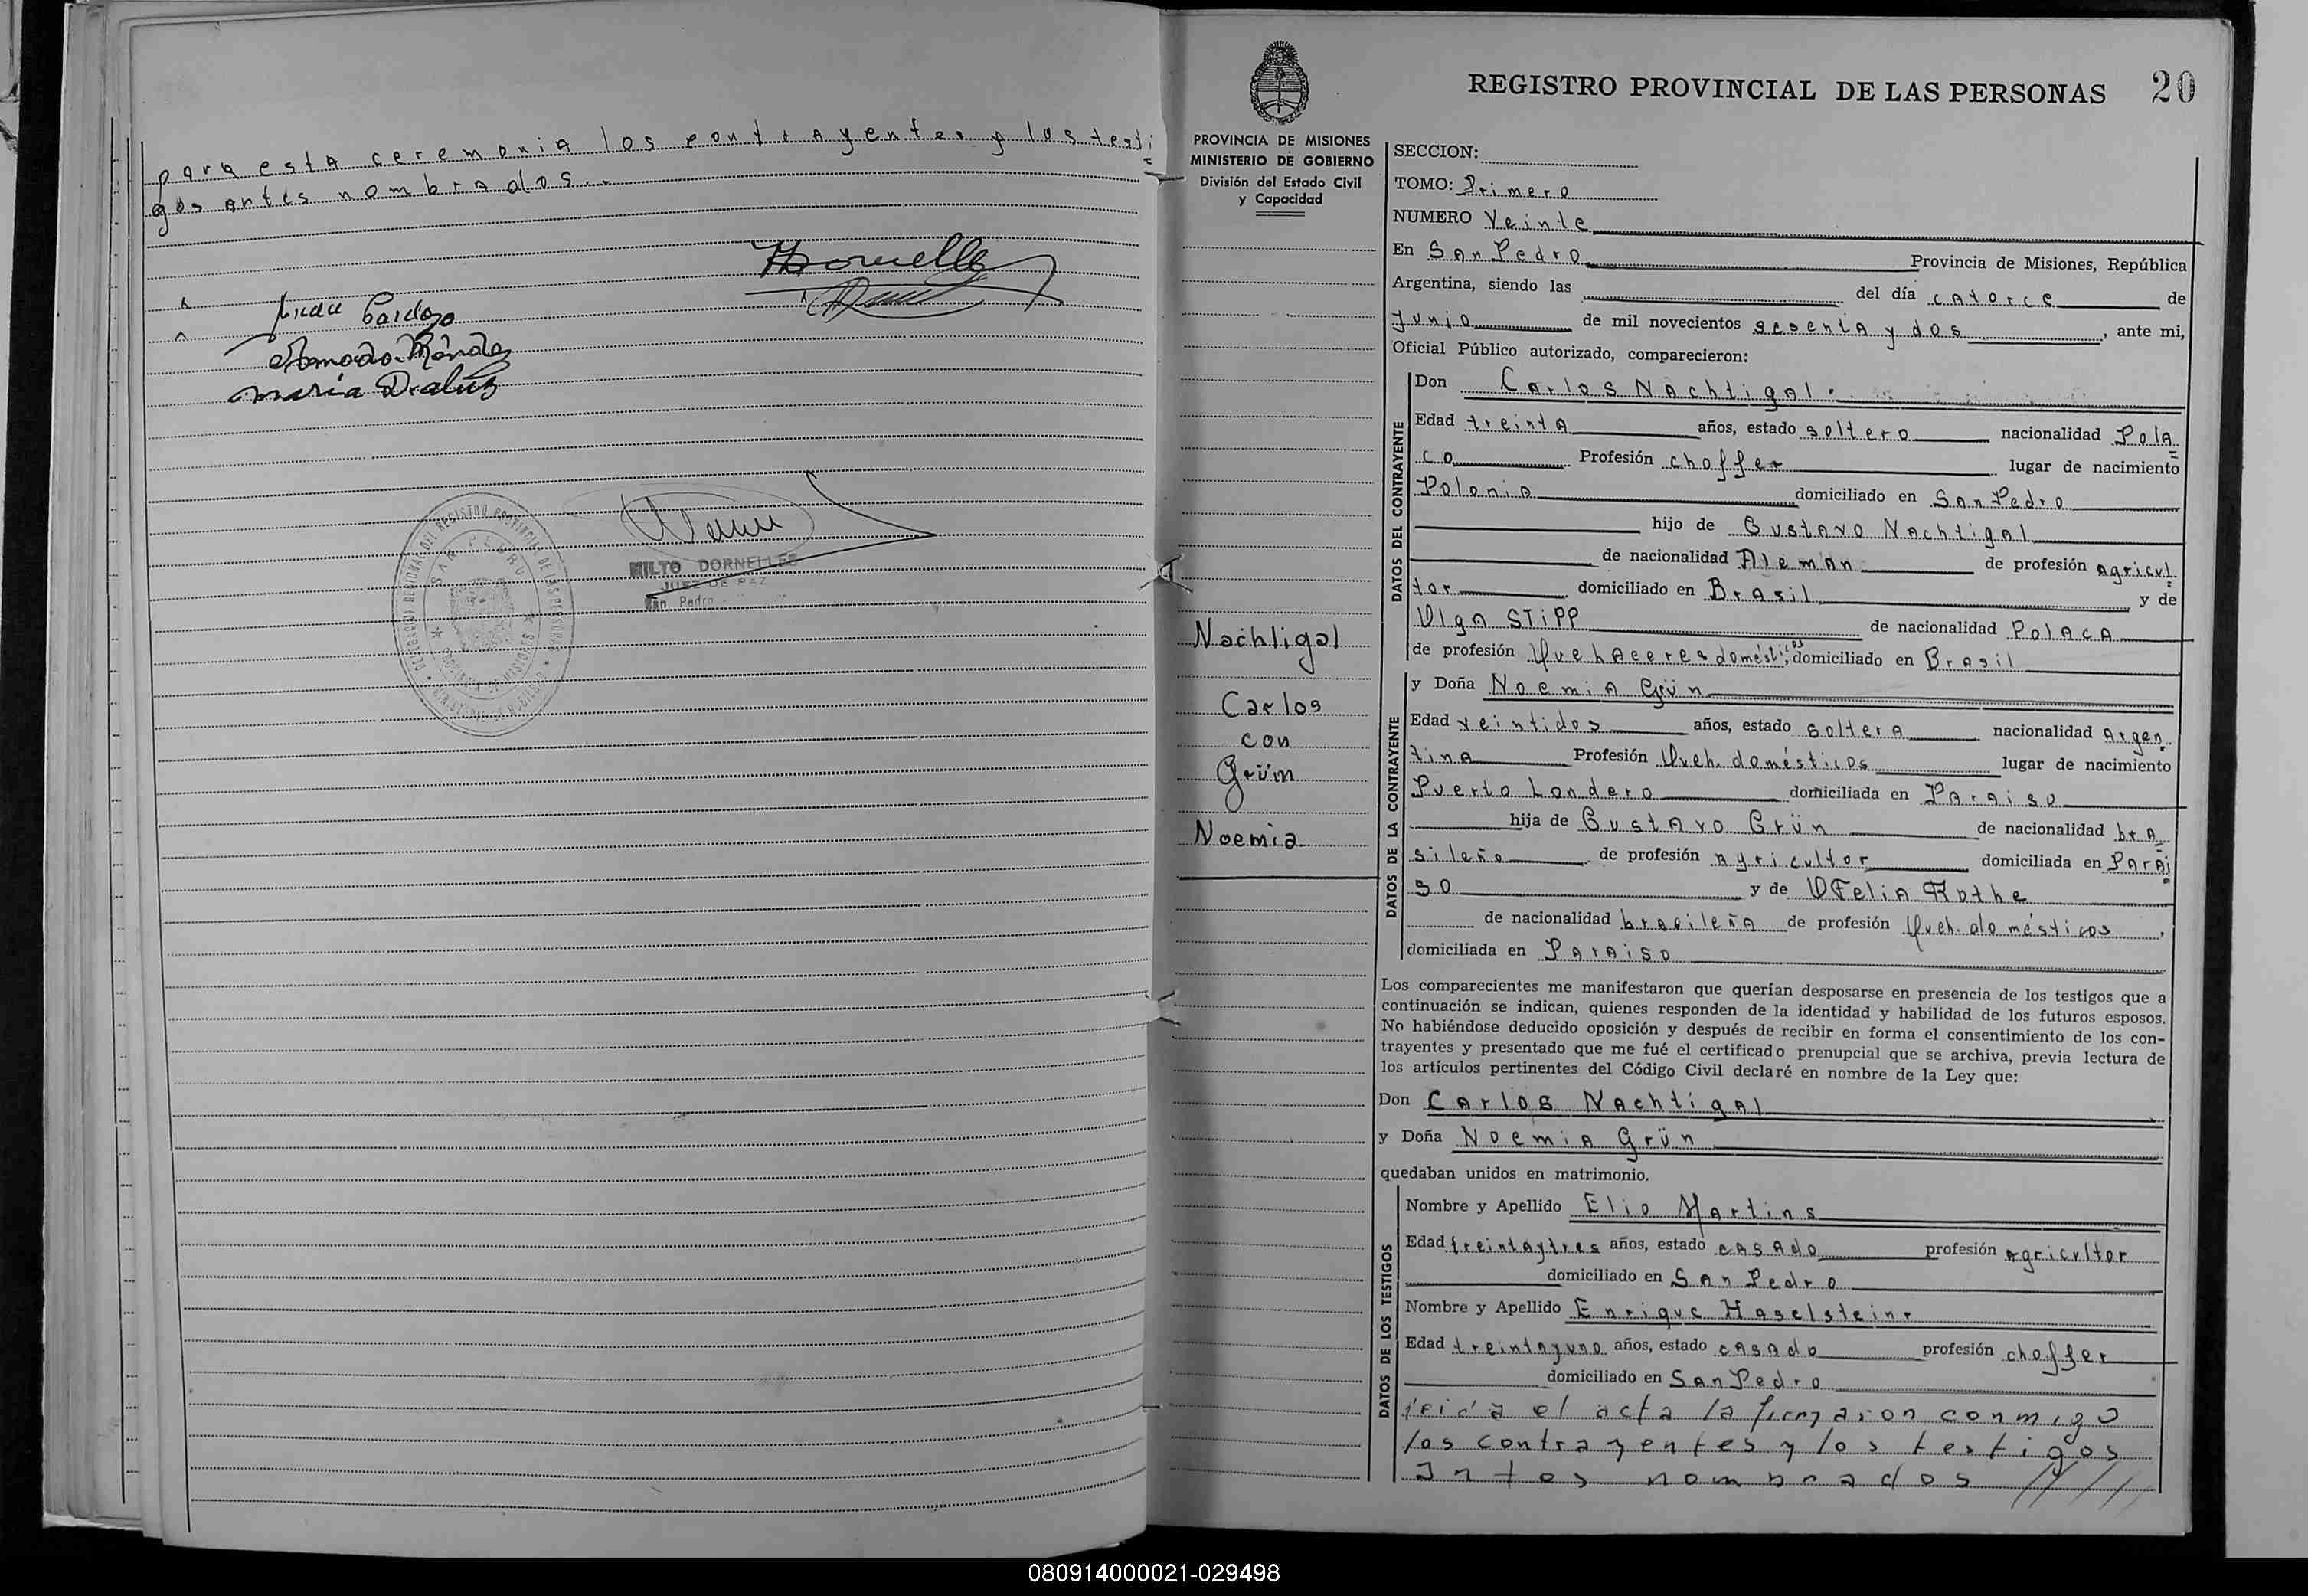 para esta ceremonia los contrayentes y los testi
gos antes nombrados..
Cardozo
Maria D.
DELEGACION REGIONAL DEL REGISTRO PROVINCIAL DE LAS PERSONAS
SAN PEDRO
PROVINCIA DE MISIONES
MINISTERIO DE GOBIERNO
MILTO DORNELLES
JUEZ DE PAZ
San Pedro
PROVINCIA DE MISIONES
MINISTERIO DE GOBIERNO
División del Estado Civil
y Capacidad
Nachtigal
Carlos
con
Grün
Noemia
REGISTRO PROVINCIAL DE LAS PERSONAS 20
SECCION:
TOMO: Primero
NUMERO Veinte
En San Pedro Provincia de Misiones, República
Argentina, siendo las del día catorce de
Junio de mil novecientos sesenta y dos, ante mi,
Oficial Público autorizado, comparecieron:
DATOS DEL CONTRAYENTE
Don Carlos Nachtigal.
Edad treinta años, estado soltero nacionalidad Pola
co Profesión choffer lugar de nacimiento
Polonia domiciliado en San Pedro
hijo de Gustavo Nachtigal
de nacionalidad Aleman de profesión agricul
tor domiciliado en Brasil y de
Olga STiPP de nacionalidad Polaca
de profesión Quehaceres domésticos, domiciliado en Brasil
DATOS DE LA CONTRAYENTE
y Doña Noemia Grün
Edad veintidos años, estado soltera nacionalidad Argen
tina Profesión Queh. domésticos lugar de nacimiento
Puerto Londero domiciliada en Paraiso
hija de Gustavo Grün de nacionalidad bra
sileño de profesión agricultor domiciliada en Parai
so y de OFelia Rothe
de nacionalidad brasileña de profesión Queh. domésticos,
domiciliada en Paraiso
Los comparecientes me manifestaron que querían desposarse en presencia de los testigos que a
continuación se indican, quienes responden de la identidad y habilidad de los futuros esposos.
No habiéndose deducido oposición y después de recibir en forma el consentimiento de los con-
trayentes y presentado que me fué el certificado prenupcial que se archiva, previa lectura de
los artículos pertinentes del Código Civil declaré en nombre de la Ley que:
Don Carlos Nachtigal
y Doña Noemia Grün
quedaban unidos en matrimonio.
DATOS DE LOS TESTIGOS
Nombre y Apellido Elio Martins
Edad treintaytres años, estado casado profesión agricultor
domiciliado en San Pedro
Nombre y Apellido Enrique Haselsteinr
Edad treintayuno años, estado casado profesión choffer
domiciliado en San Pedro
leida el acta la firmaron conmigo
los contrayentes y los testigos
antes nombrados /////
080914000021-029498